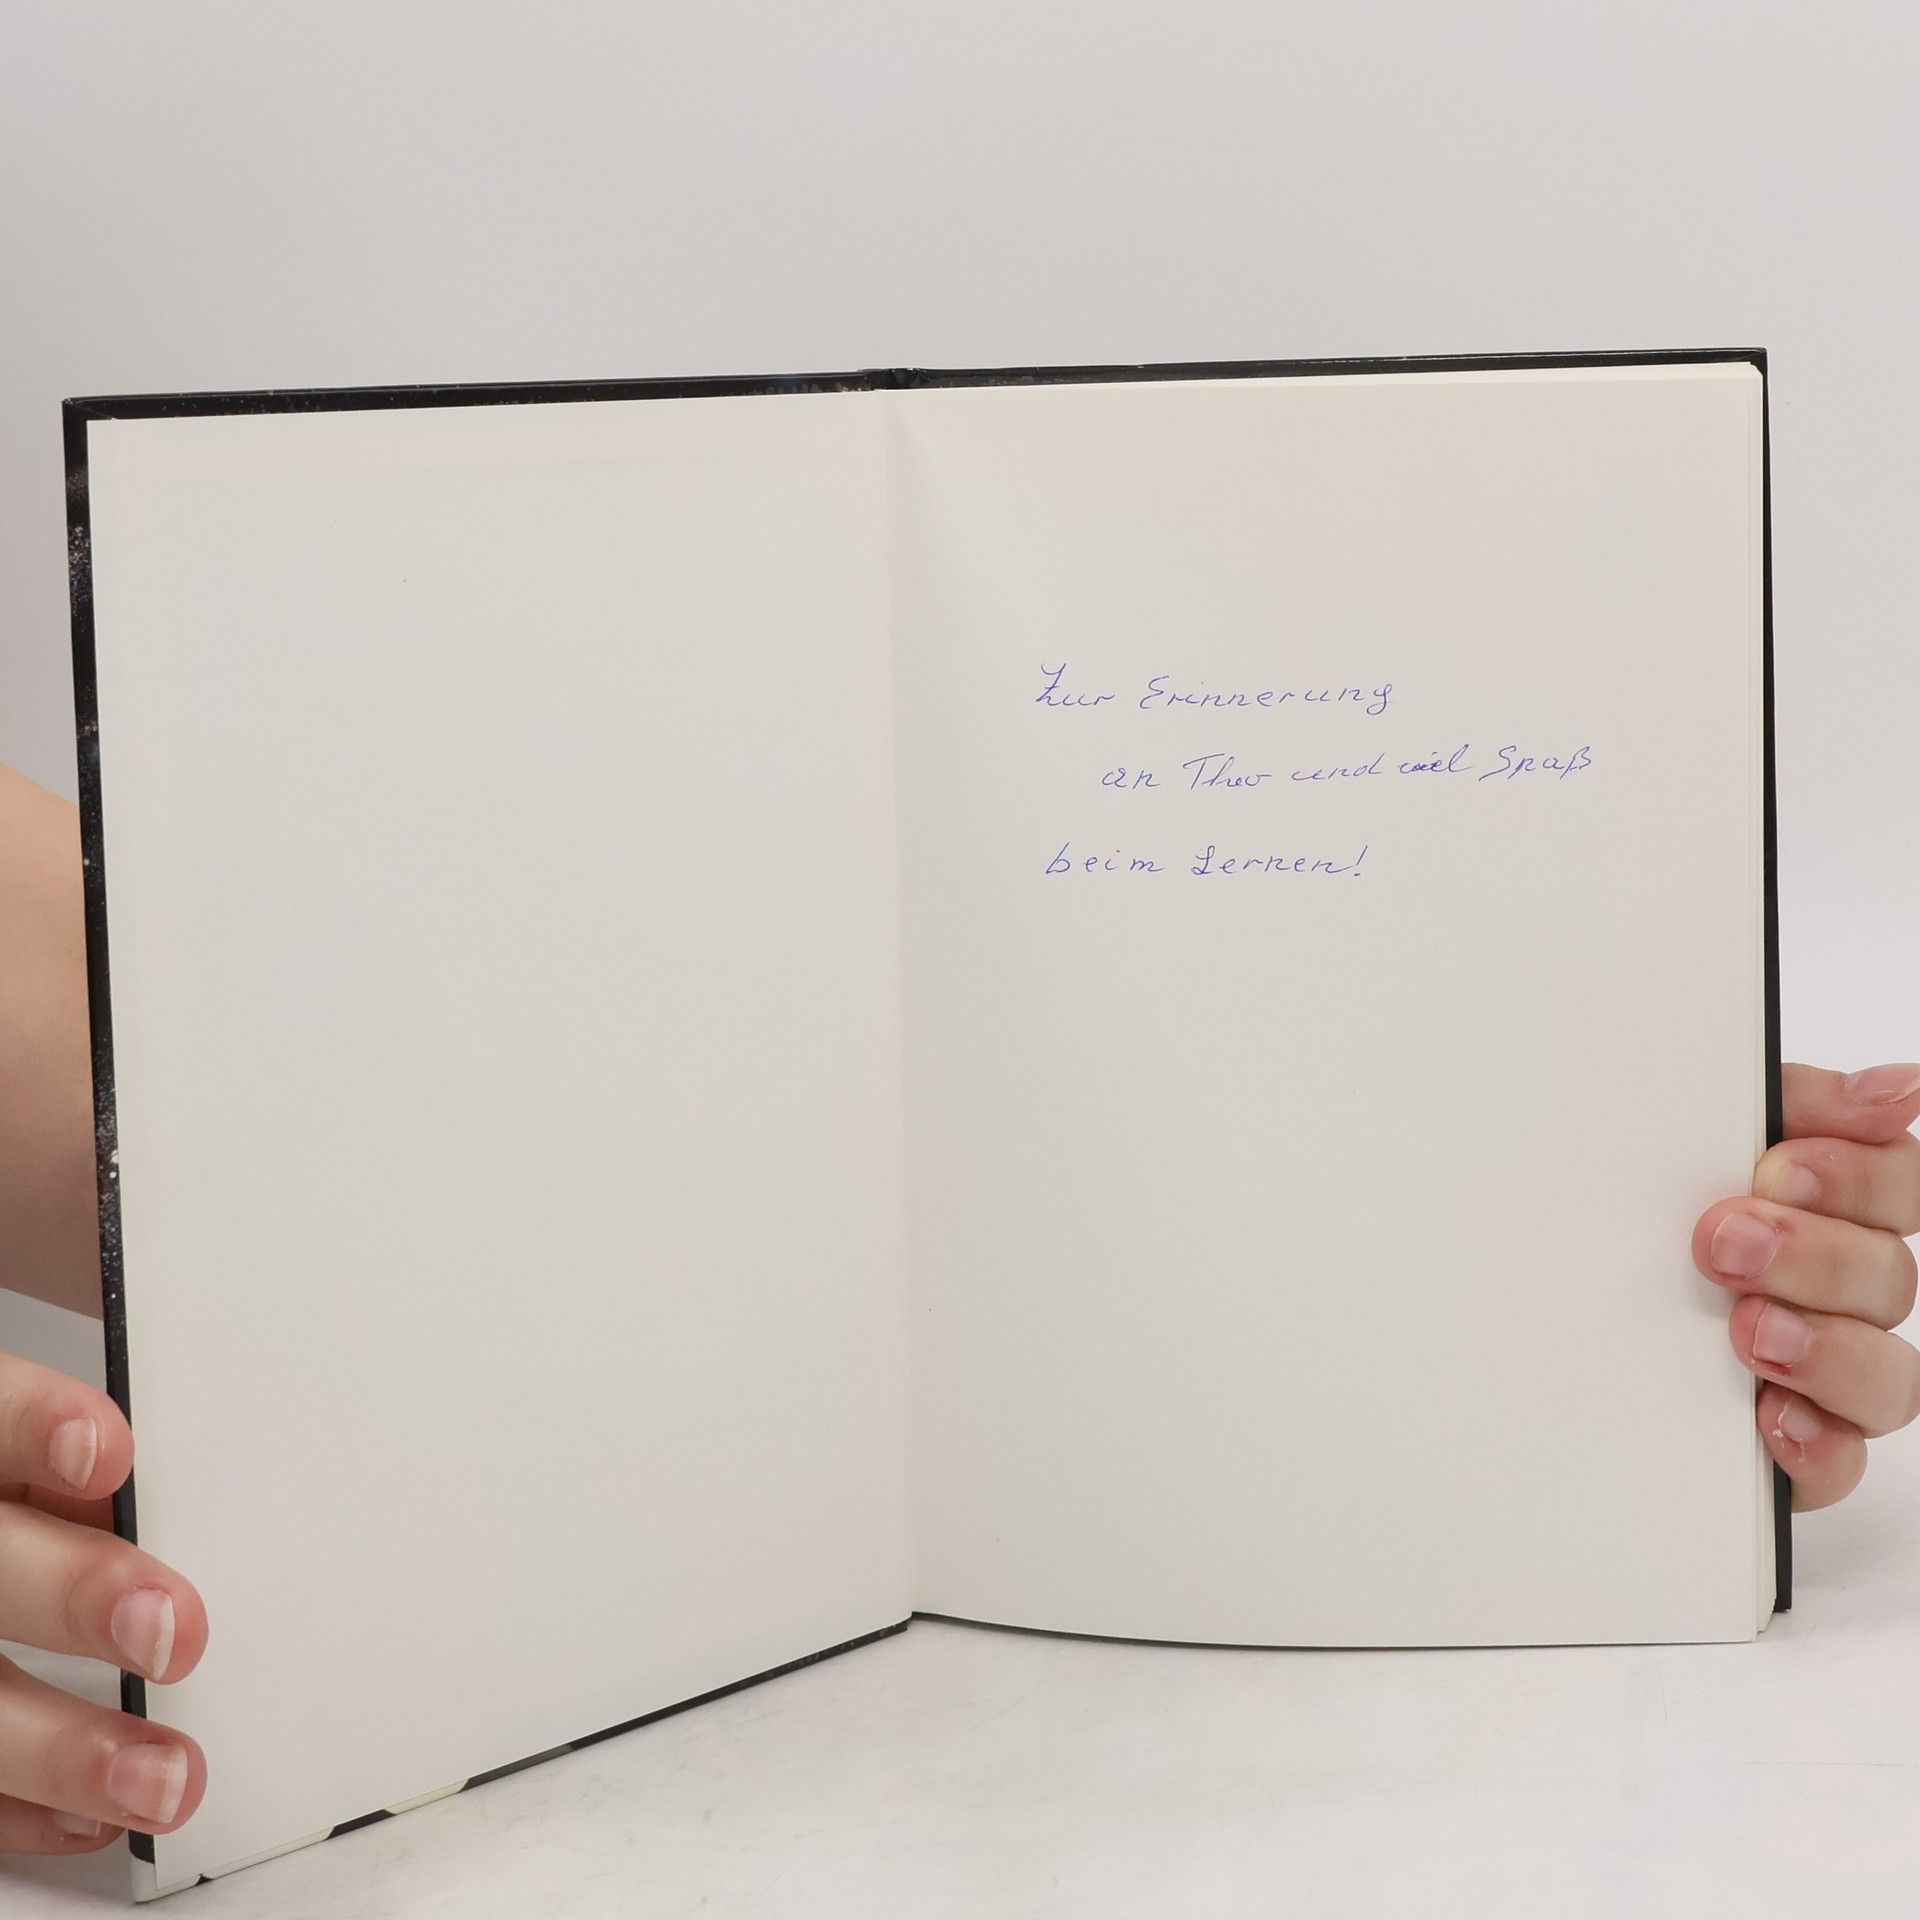 Zur Erinnerung
an Theo und viel Spaß
beim Lernen!